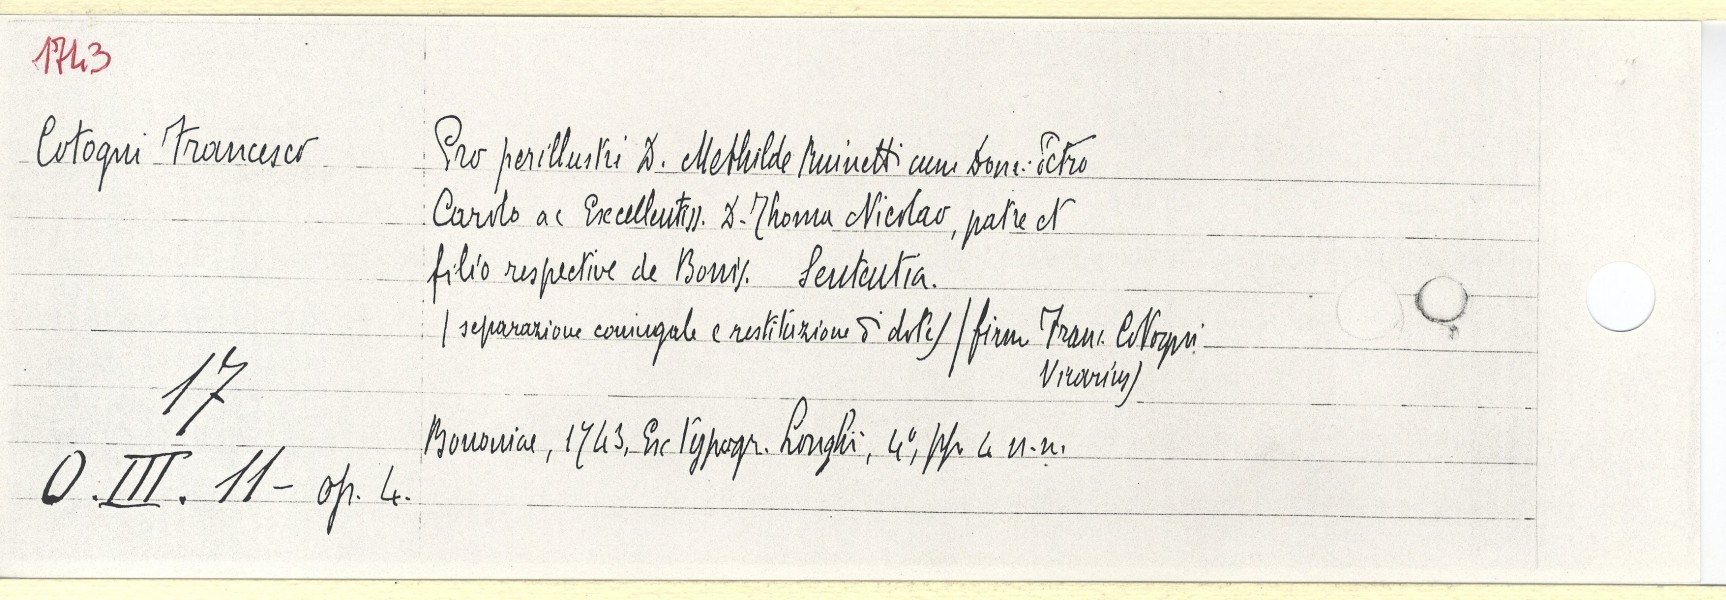 1743
Cotogni Francesco
Pro perillustri D. Methilde Ruinetti cum Dom: Petro
Carolo ac Excellentiss. D. Thoma Nicolao, patre et
filio respective de Bonis. Sententia.
(separazione coniugale e restituzione di dote) (firm Franc. Cotogni
Vicarius)
17
Bononiae, 1743, Ex Typogr. Longhi, 4°, pp. 4 n.n.
O.III. 11- op. 4.